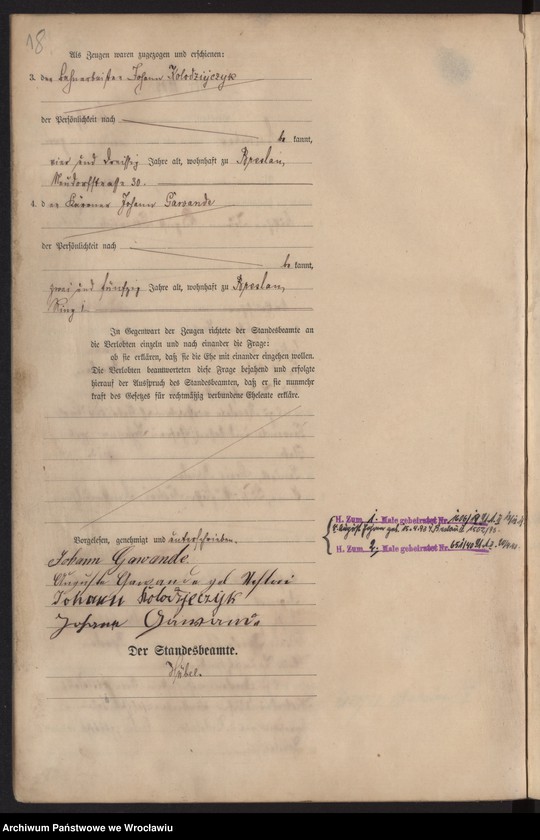 18.
Als Zeugen waren zugezogen und erschienen:
3. der Bahnarbeiter Johann Kolodziejczyk
der Persönlichkeit nach
be kannt,
vier und dreißig Jahre alt, wohnhaft zu Breslau,
Neudorfstraße 30.
4. der Johann Gawande
der Persönlichkeit nach
be kannt,
zwei und fünfzig Jahre alt, wohnhaft zu Breslau,
Ring 1.
In Gegenwart der Zeugen richtete der Standesbeamte an
die Verlobten einzeln und nach einander die Frage:
ob sie erklären, daß sie die Ehe mit einander eingehen wollen.
Die Verlobten beantworteten diese Frage bejahend und erfolgte
hierauf der Ausspruch des Standesbeamten, daß er sie nunmehr
kraft des Gesetzes für rechtmäßig verbundene Eheleute erkläre.
Vorgelesen, genehmigt und unterschrieben.
Johann Gawande
Auguste Gawande geb
Johann Kolodziejczyk
Johann Gawande
Der Standesbeamte.
Hübel.
H. Zum 1. Male geheiratet Nr.
geb.
H. Zum 2. Male geheiratet Nr.
Archiwum Państwowe we Wrocławiu